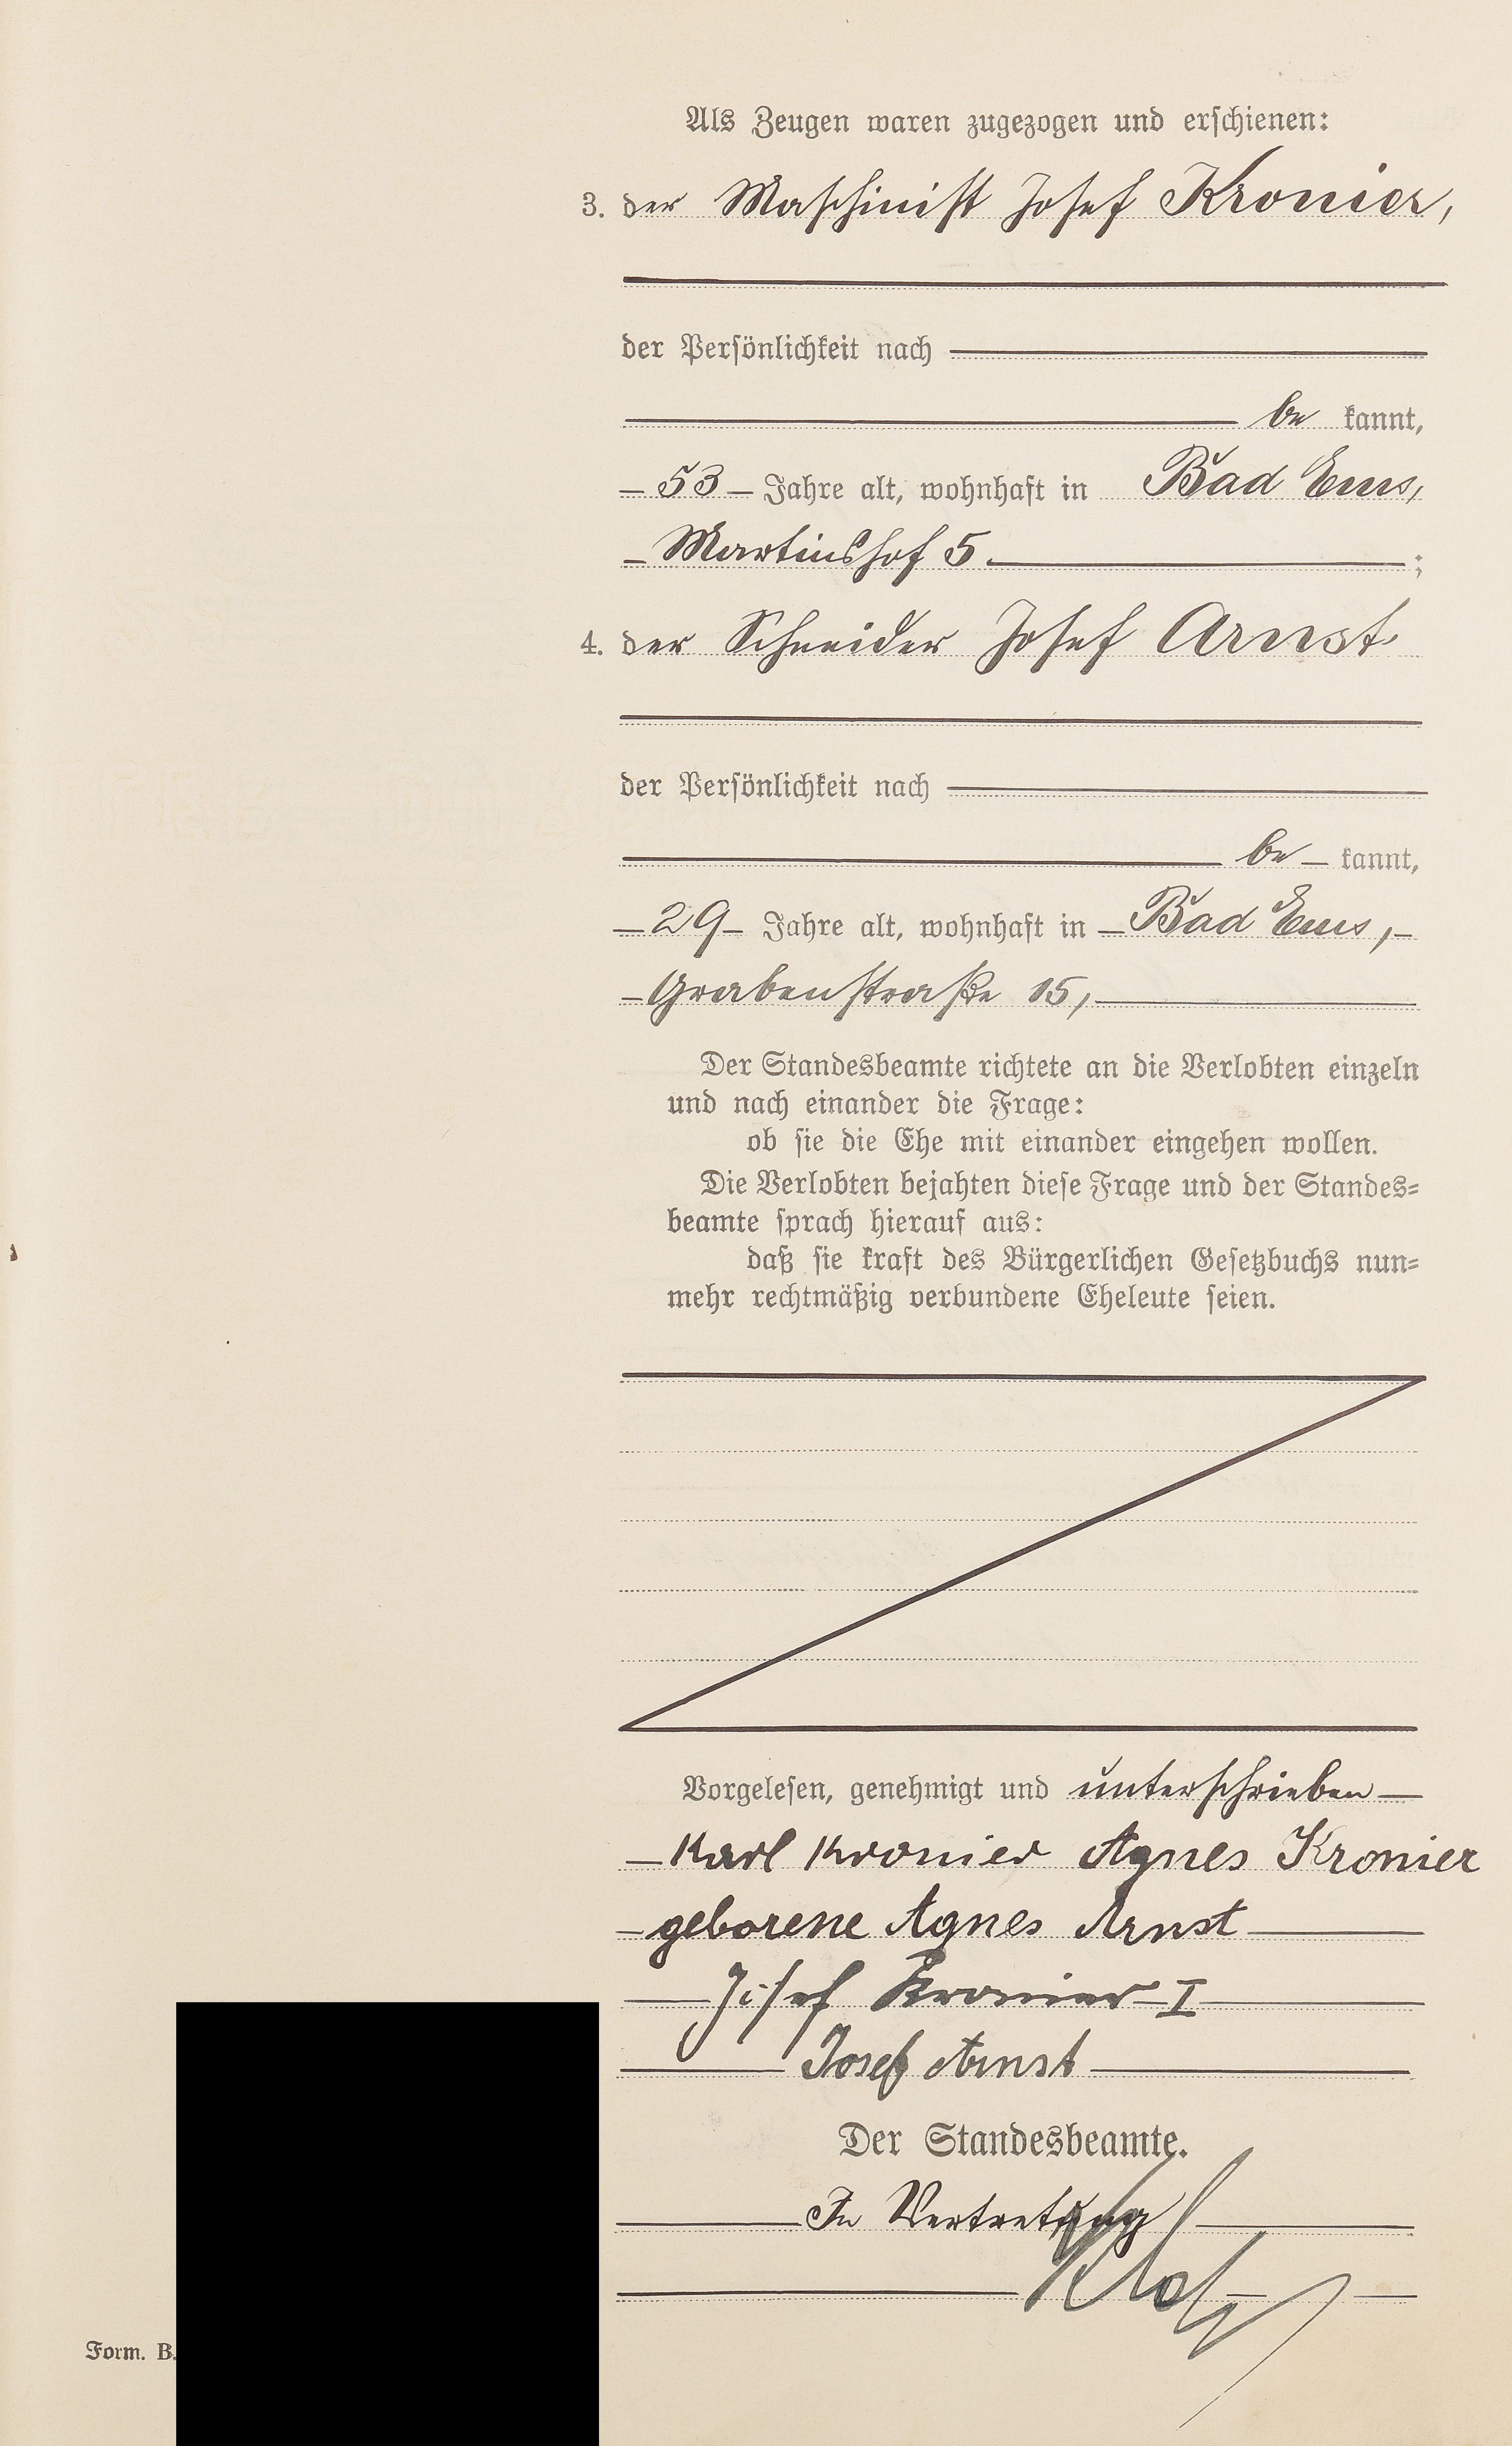 Als Zeugen waren zugezogen und erschienen:
3. der Maschinist Josef Kronier,
der Persönlichkeit nach
be kannt,
– 53 – Jahre alt, wohnhaft in Bad Ems,
– Martinshof 5. ;
4. der Schneider Josef Arnst
der Persönlichkeit nach
be – kannt,
– 29 – Jahre alt, wohnhaft in – Bad Ems, –
– Grabenstraße 15,
Der Standesbeamte richtete an die Verlobten einzeln
und nach einander die Frage:
ob sie die Ehe mit einander eingehen wollen.
Die Verlobten bejahten diese Frage und der Standes=
beamte sprach hierauf aus:
daß sie kraft des Bürgerlichen Gesetzbuchs nun=
mehr rechtmäßig verbundene Eheleute seien.
Vorgelesen, genehmigt und unterschrieben –
– Karl Kronier Agnes Kronier
– geborene Agnes Arnst
Josef Kronier I
Josef Arnst
Der Standesbeamte.
In Vertretung
Form. B.